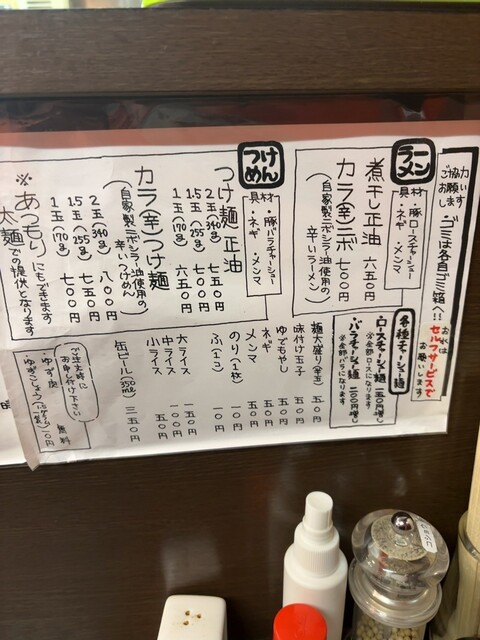 ご協力
お願い
します
ゴミは各自ゴミ箱へ!!
お水は
セルフサービスで
お願いします
ラーメン
具材
・豚ロースチャーシュー
・ネギ ・メンマ
煮干し正油 六五〇円
カラ(辛)ニボ 七〇〇円
(自家製ニボシラー油使用の
辛いラーメン)
つけめん
具材
・豚バラチャーシュー
・ネギ ・メンマ
つけ麺 正油
1玉(170g) 六五〇円
1.5玉(255g) 七〇〇円
2玉(340g) 七五〇円
カラ(辛)つけ麺
(自家製ニボシラー油使用の
辛いつけめん)
1玉(170g) 七〇〇円
1.5玉(255g) 七五〇円
2玉(340g) 八〇〇円
※あつもりにもできます
太麺での提供となります
各種チャーシュー麺
・ロースチャーシュー麺 一五〇円増し
※全部ロースになります
・バラチャーシュー麺 二〇〇円増し
※全部バラになります
麺大盛り(半玉) 五〇円
味付け玉子 五〇円
ゆでもやし 五〇円
ネギ 五〇円
メンマ 五〇円
のり(1枚) 一〇円
ふ(1コ) 一〇円
大ライス 一五〇円
中ライス 一〇〇円
小ライス 五〇円
缶ビール(350ml) 三五〇円
ご注文時に
お申し付け下さい
・ゆず皮 無料
・ゆずこしょう